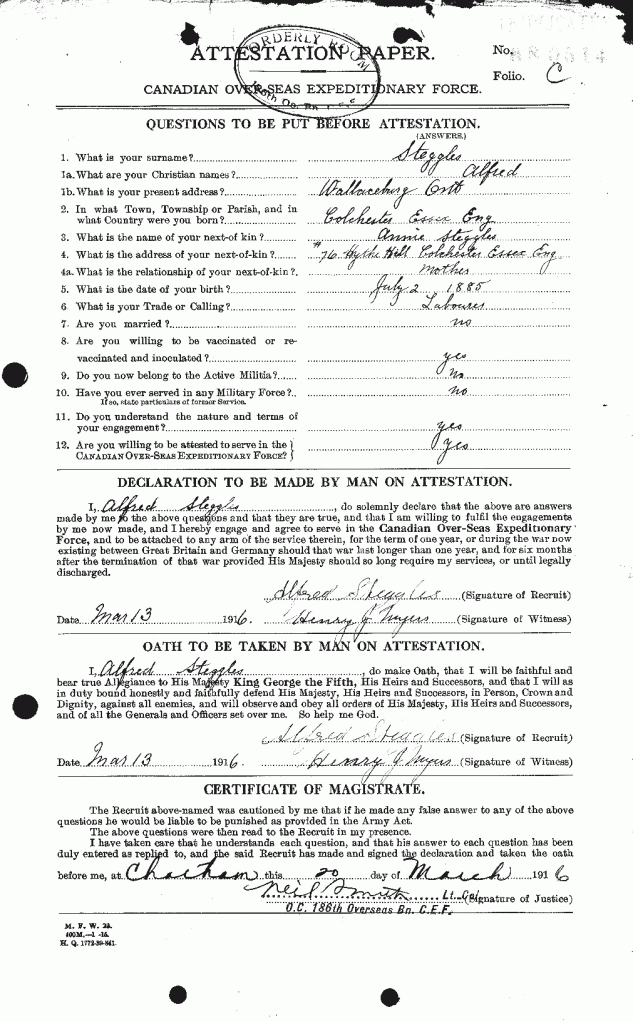 ORDERLY ROOM
186th Bn. C.E.F.
ATTESTATION PAPER.
No.
Folio. C
CANADIAN OVER-SEAS EXPEDITIONARY FORCE.
QUESTIONS TO BE PUT BEFORE ATTESTATION.
(ANSWERS.)
1. What is your surname? Steggles
1a. What are your Christian names? Alfred
1b. What is your present address? Wallaceburg Ont
2. In what Town, Township or Parish, and in
what Country were you born? Colchester Essex Eng
3. What is the name of your next-of kin? Annie Steggles
4. What is the address of your next-of-kin? #76 Hythe Hill Colchester Essex Eng
4a. What is the relationship of your next-of-kin? Mother
5. What is the date of your birth? July 2 1885
6 What is your Trade or Calling? Labourer
7. Are you married? no
8. Are you willing to be vaccinated or re-
vaccinated and inoculated? yes
9. Do you now belong to the Active Militia? No
10. Have you ever served in any Military Force? no
If so, state particulars of former Service.
11. Do you understand the nature and terms of
your engagement? yes
12. Are you willing to be attested to serve in the
CANADIAN OVER-SEAS EXPEDITIONARY FORCE? Yes
DECLARATION TO BE MADE BY MAN ON ATTESTATION.
I, Alfred Steggles, do solemnly declare that the above are answers
made by me to the above questions and that they are true, and that I am willing to fulfil the engagements
by me now made, and I hereby engage and agree to serve in the Canadian Over-Seas Expeditionary
Force, and to be attached to any arm of the service therein, for the term of one year, or during the war now
existing between Great Britain and Germany should that war last longer than one year, and for six months
after the termination of that war provided His Majesty should so long require my services, or until legally
discharged.
Alfred Steggles (Signature of Recruit)
Date Mar 13 1916. Henry J Myers (Signature of Witness)
OATH TO BE TAKEN BY MAN ON ATTESTATION.
I, Alfred Steggles, do make Oath, that I will be faithful and
bear true Allegiance to His Majesty King George the Fifth, His Heirs and Successors, and that I will as
in duty bound honestly and faithfully defend His Majesty, His Heirs and Successors, in Person, Crown and
Dignity, against all enemies, and will observe and obey all orders of His Majesty, His Heirs and Successors,
and of all the Generals and Officers set over me. So help me God.
Alfred Steggles (Signature of Recruit)
Date Mar 13 1916. Henry J Myers (Signature of Witness)
CERTIFICATE OF MAGISTRATE.
The Recruit above-named was cautioned by me that if he made any false answer to any of the above
questions he would be liable to be punished as provided in the Army Act.
The above questions were then read to the Recruit in my presence.
I have taken care that he understands each question, and that his answer to each question has been
duly entered as replied to, and the said Recruit has made and signed the declaration and taken the oath
before me, at Chatham this 20 day of March 1916
Neil Smith Lt. Col (Signature of Justice)
O.C. 186th Overseas Bn. C.E.F.
M. F. W. 23.
H. Q. 1772-39-841.